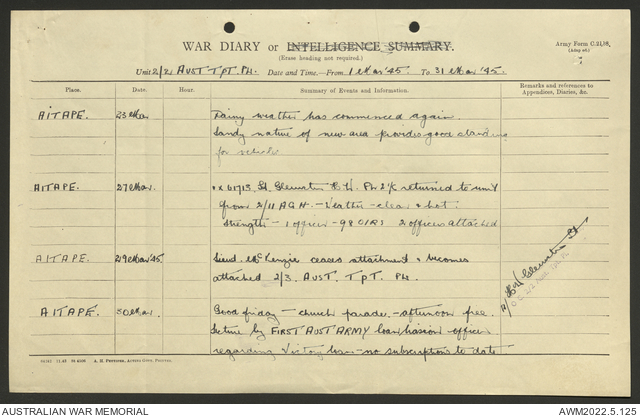 WAR DIARY or INTELLIGENCE SUMMARY.
(Erase heading not required.)
Army Form C.2118,
Unit 2/2 AUST TPT. PL. Date and Time—From 1 Mar '45 To 31 Mar '45.
Place. Date. Hour. Summary of Events and Information. Remarks and references to Appendices, Diaries, &c.
AITAPE. 23 Mar Rainy weather has commenced again.
Sandy nature of new area provides good standing
for vehicles
AITAPE. 27 Mar. 61713 Lt. H. Pl 2 i/c returned to unit
from 2/11 A.G.H. — Weather — clear & hot.
Strength — 1 officer — 98 O/RS 2 officers attached
AITAPE. 29 Mar '45 Lieut. McKenzie ceases attachment & becomes
attached 2/3. AUST. TPT. PL.
AITAPE. 30 Mar. Good Friday — church parade. — afternoon free.
Lecture by FIRST AUST ARMY loan liaison officer
regarding Victory loan — no subscriptions to date
Lt
AUSTRALIAN WAR MEMORIAL
AWM2022.5.125